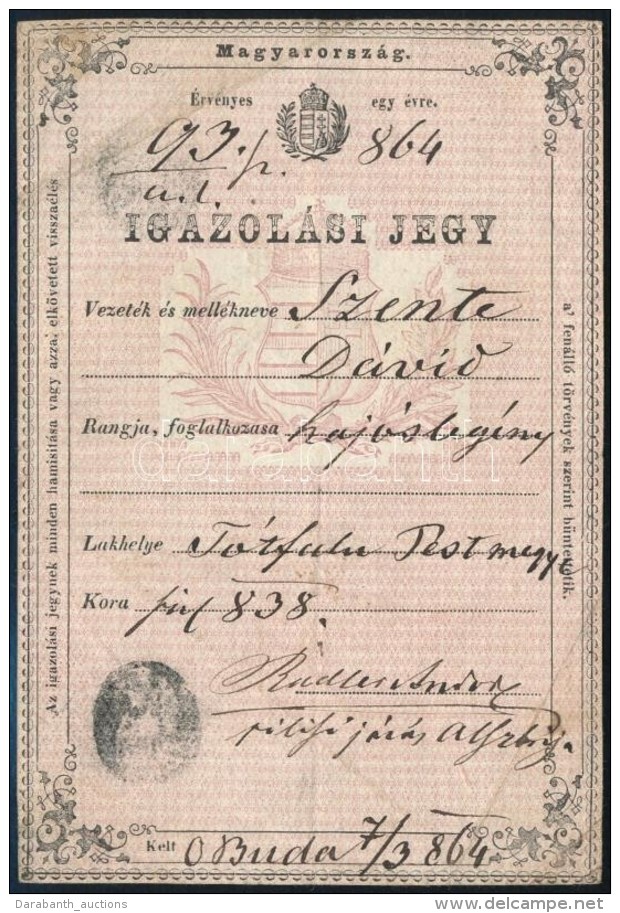 Magyarország.
Érvényes egy évre.
93. p. 864
u. l.
IGAZOLÁSI JEGY
Vezeték és mellékneve Szente
Dávid
Rangja, foglalkozasa hajóslegény
Lakhelye Tótfalu Pestmegye
Kora 838.
Radler Andor
pilisi járás
Kelt O Buda 7/3 864
Az igazolási jegynek minden hamisítása vagy azzal elkövetett visszaélés
a' fenálló törvények szerint büntettetik.
darabanth
Darabanth_auctions
www.delcampe.net